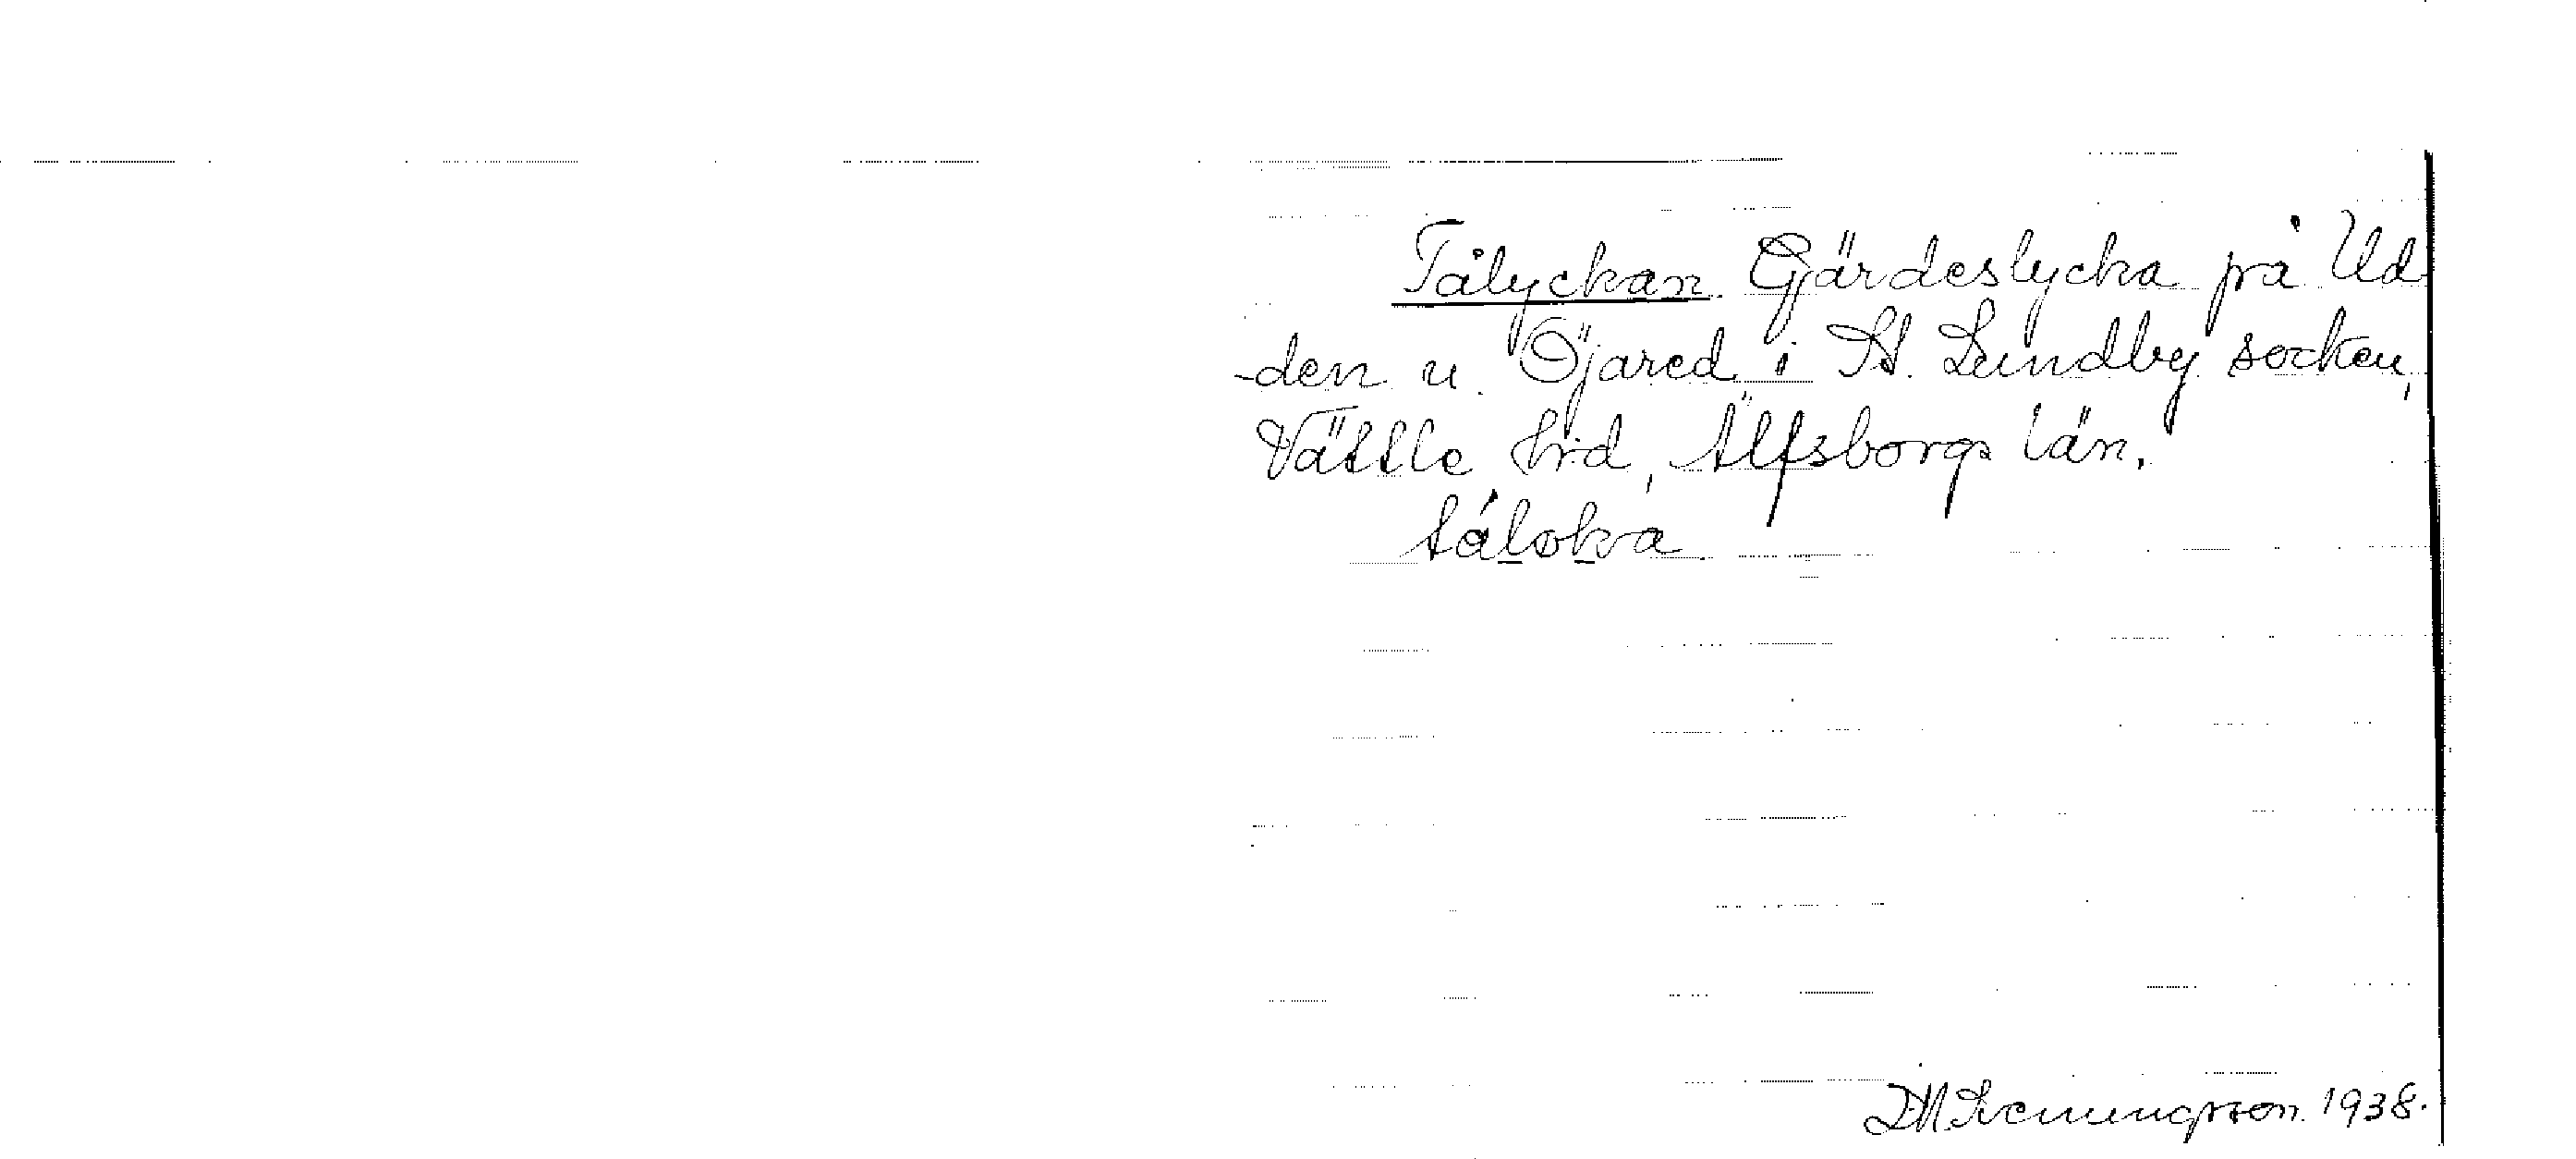 Tålyckan. Gärdeslycka på Ud
-den u. Öjared i St. Lundby socken,
Vättle hrd, Älfsborgs län.
táloka
D.M. Svenningsson. 1938.